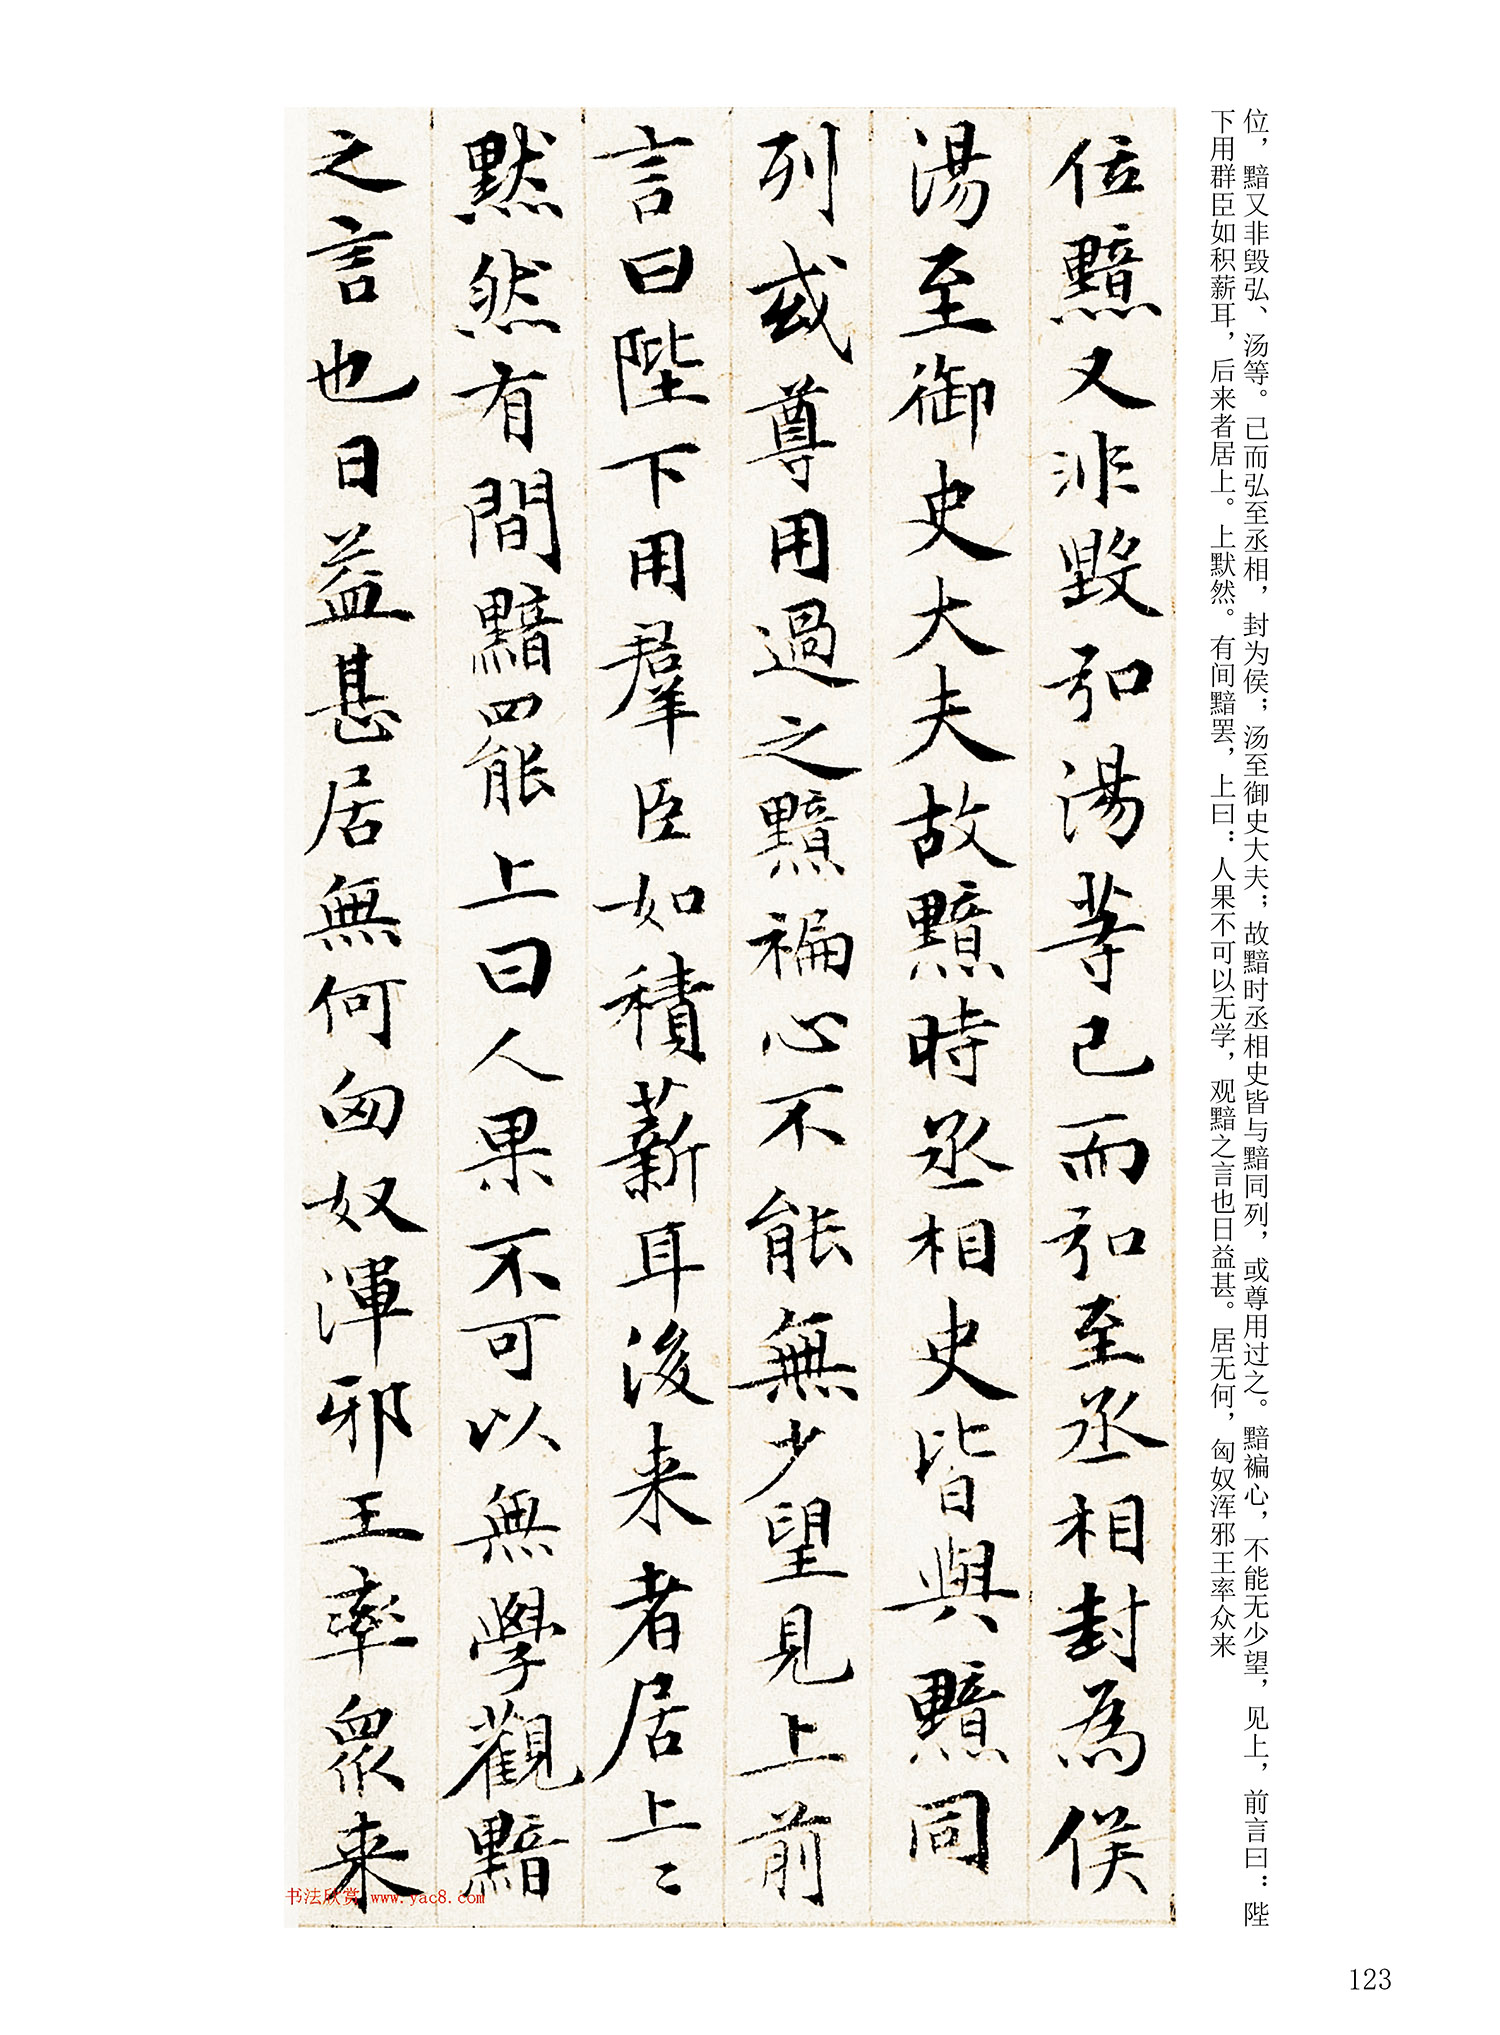 位，黯又非毁弘、汤等。已而弘至丞相，封为侯；汤至御史大夫；故黯时丞相史皆与黯同列，或尊用过之。黯褊心，不能无少望，见上，前言曰：陛
下用群臣如积薪耳，后来者居上。上默然。有间黯罢，上曰：人果不可以无学，观黯之言也日益甚。居无何，匈奴浑邪王率众来
位黯又非毀弘湯等已而弘至丞相封為侯
湯至御史大夫故黯時丞相史皆與黯同
列或尊用過之黯褊心不能無少望見上前
言曰陛下用羣臣如積薪耳後来者居上〻
黙然有間黯罷上曰人果不可以無學觀黯
之言也日益甚居無何匈奴渾邪王率眾来
书法欣赏 www.yac8.com
123